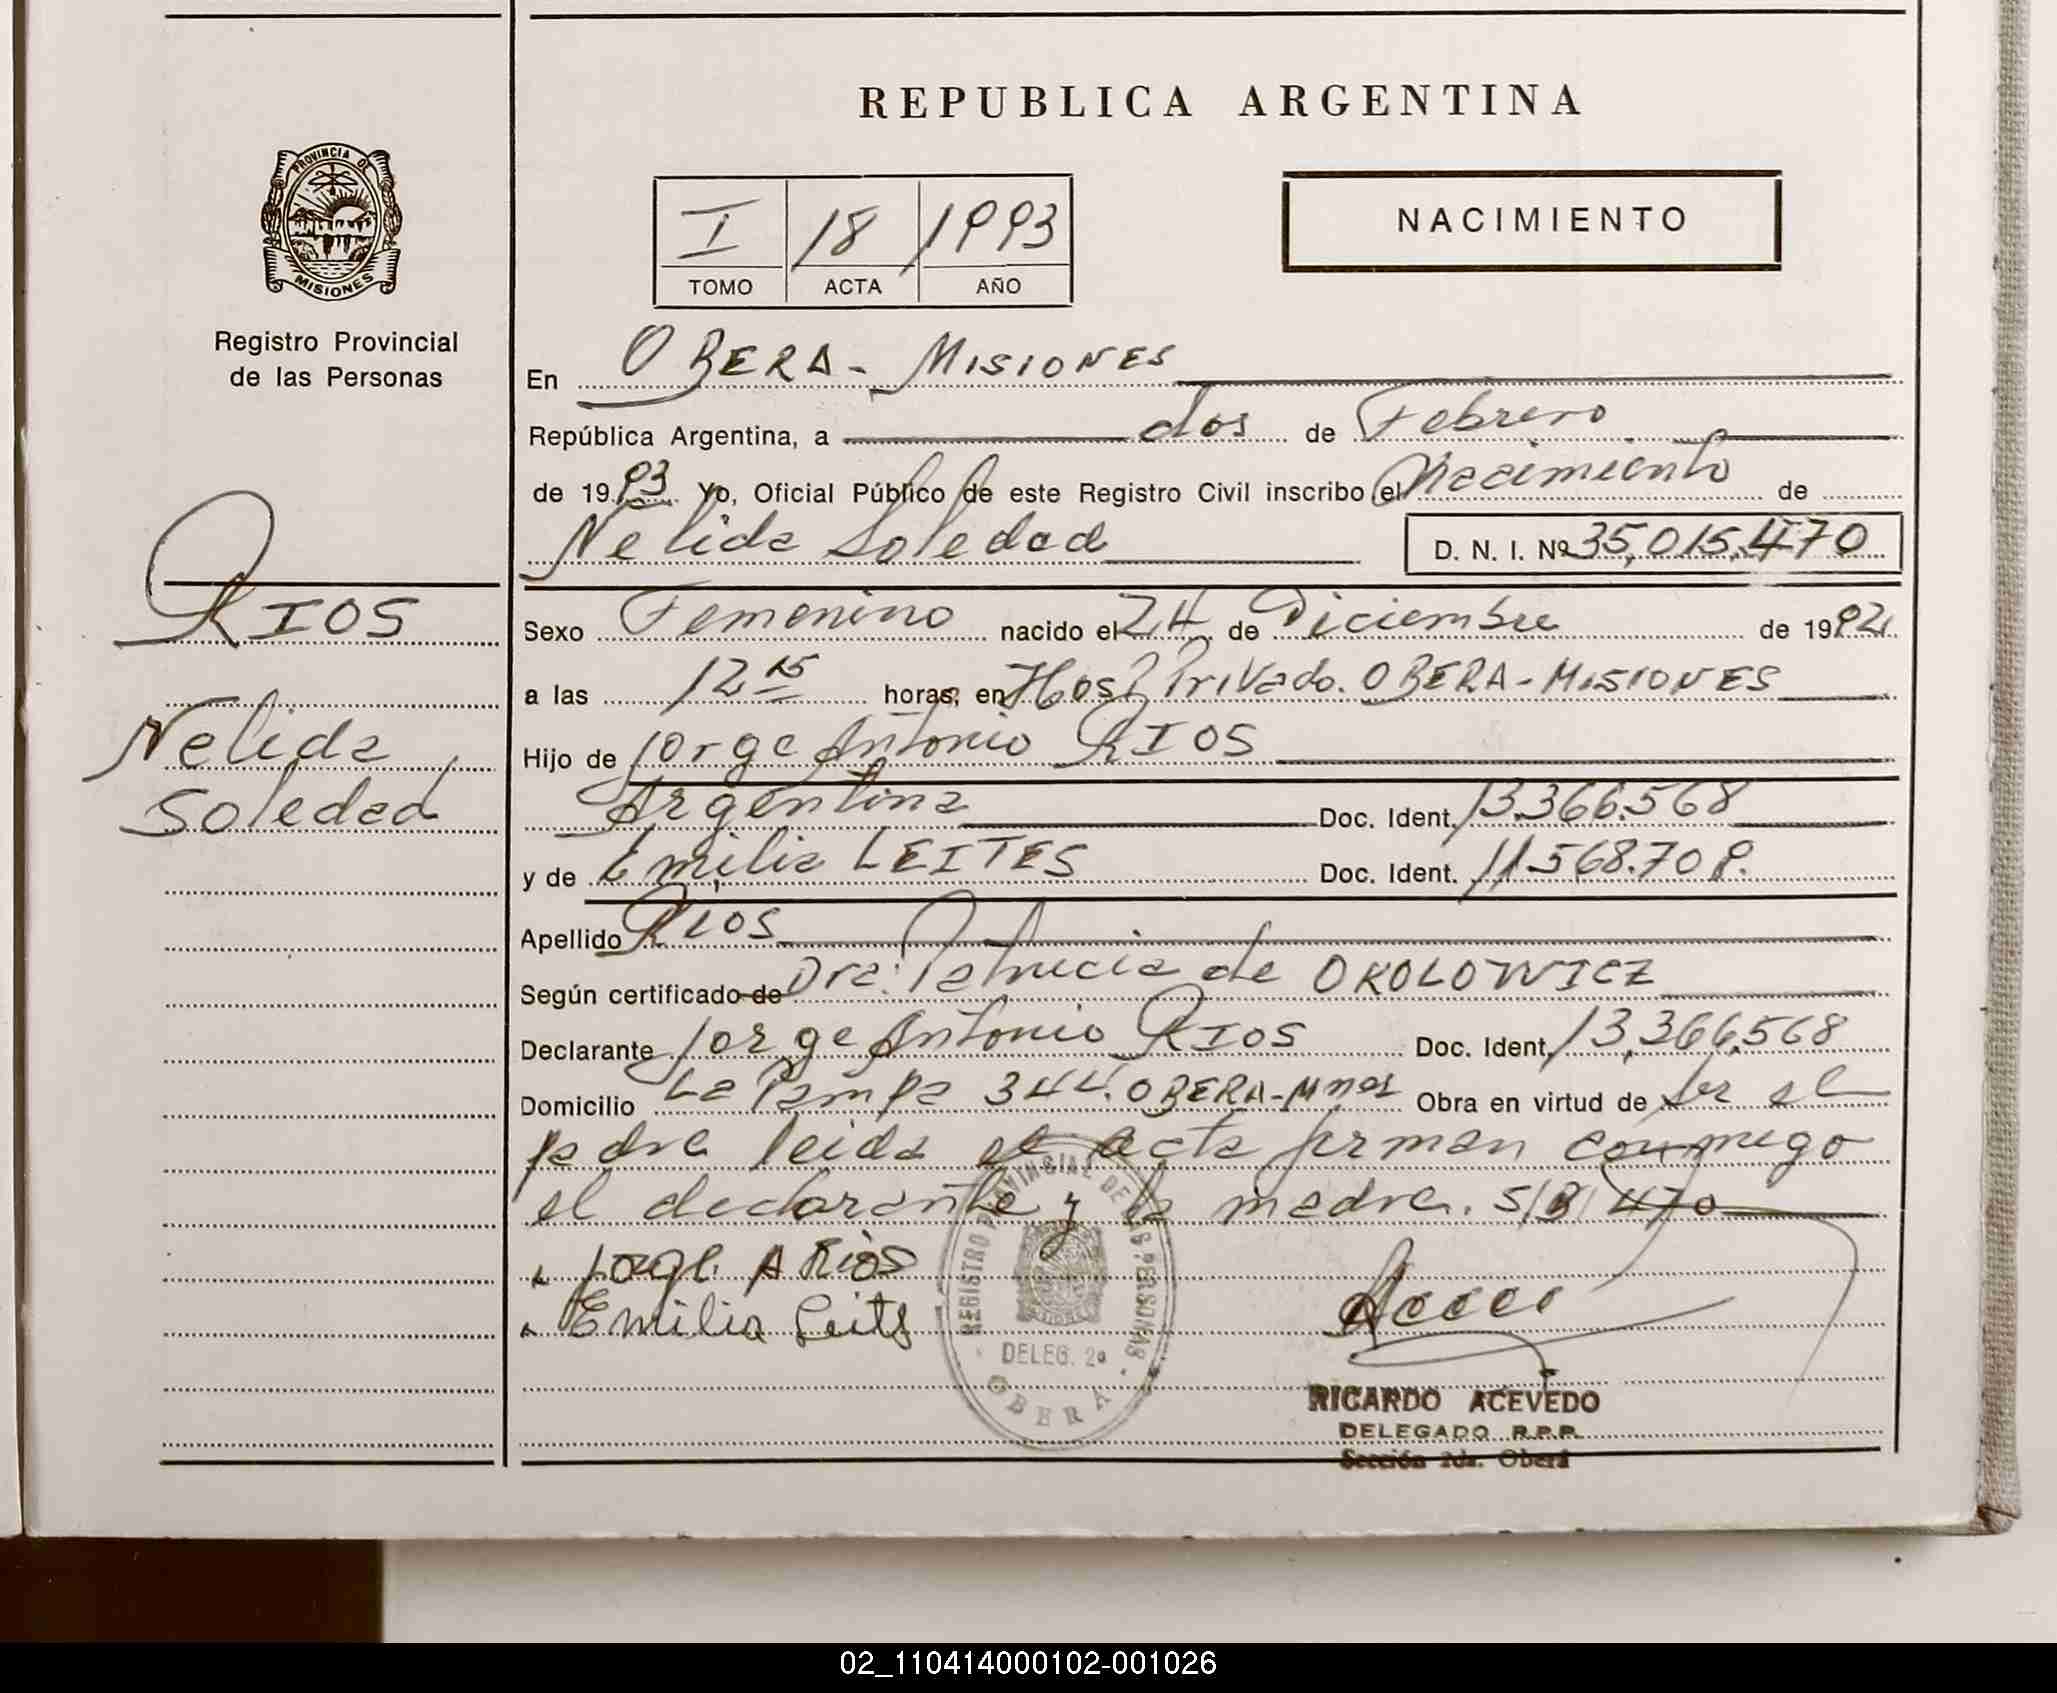 REPUBLICA ARGENTINA
PROVINCIA DE
MISIONES
Registro Provincial
de las Personas
I 18 1993
TOMO ACTA AÑO
NACIMIENTO
En OBERA - MISIONES
República Argentina, a dos de Febrero
de 1993 Yo, Oficial Público de este Registro Civil inscribo el Nacimiento de
Nelida Soledad D. N. I. Nº 35,015,470
RIOS
Nelida
Soledad
Sexo Femenino nacido el 24 de Diciembre de 1992
a las 12 15 horas, en Hosp Privado. OBERA - MISIONES
Hijo de Jorge Antonio RIOS
Argentina Doc. Ident. 13.366.568
y de Emilia LEITES Doc. Ident. 11.568.709.
Apellido RIOS
Según certificado de Dra. Patricia de OKOLOWICZ
Declarante Jorge Antonio RIOS Doc. Ident. 13,366,568
Domicilio La Pampa 344. OBERA - Mnes Obra en virtud de ser el
padre leida el acta firman conmigo
el declarante y la madre. S/B/ 470
Jorge A Rios
Emilia Leites
REGISTRO PROVINCIAL DE LAS PERSONAS
DELEG. 2ª
OBERA
RICARDO ACEVEDO
DELEGADO R.P.P.
Sección 2da. Oberá
02_110414000102-001026